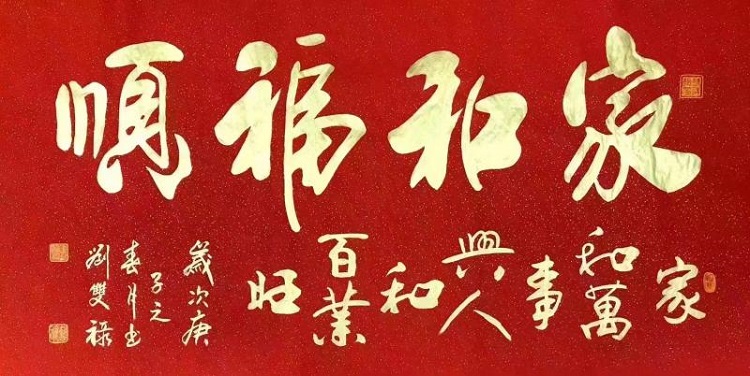 家和福順
家和萬事興人和百業旺
歲次庚
子之
春月書
劉雙祿